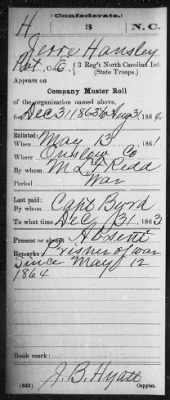 Confederate.
H 3 N.C.
Jerre Hansley
Pvt, Co. E, 3 Reg't North Carolina Inf.
(State Troops.)
Appears on
Company Muster Roll
of the organization named above,
for Dec 31 1863 to Aug 31, 1864
Enlisted:
When May 13, 1861
Where Onslow Co
By whom M L F Redd
Period War
Last paid:
By whom Capt Byrd
To what time Dec 31, 1863
Present or absent Absent
Remarks: Prisner of war
Since May 12
1864
Book mark:
J. B. Hyatt
(642) Copyist.